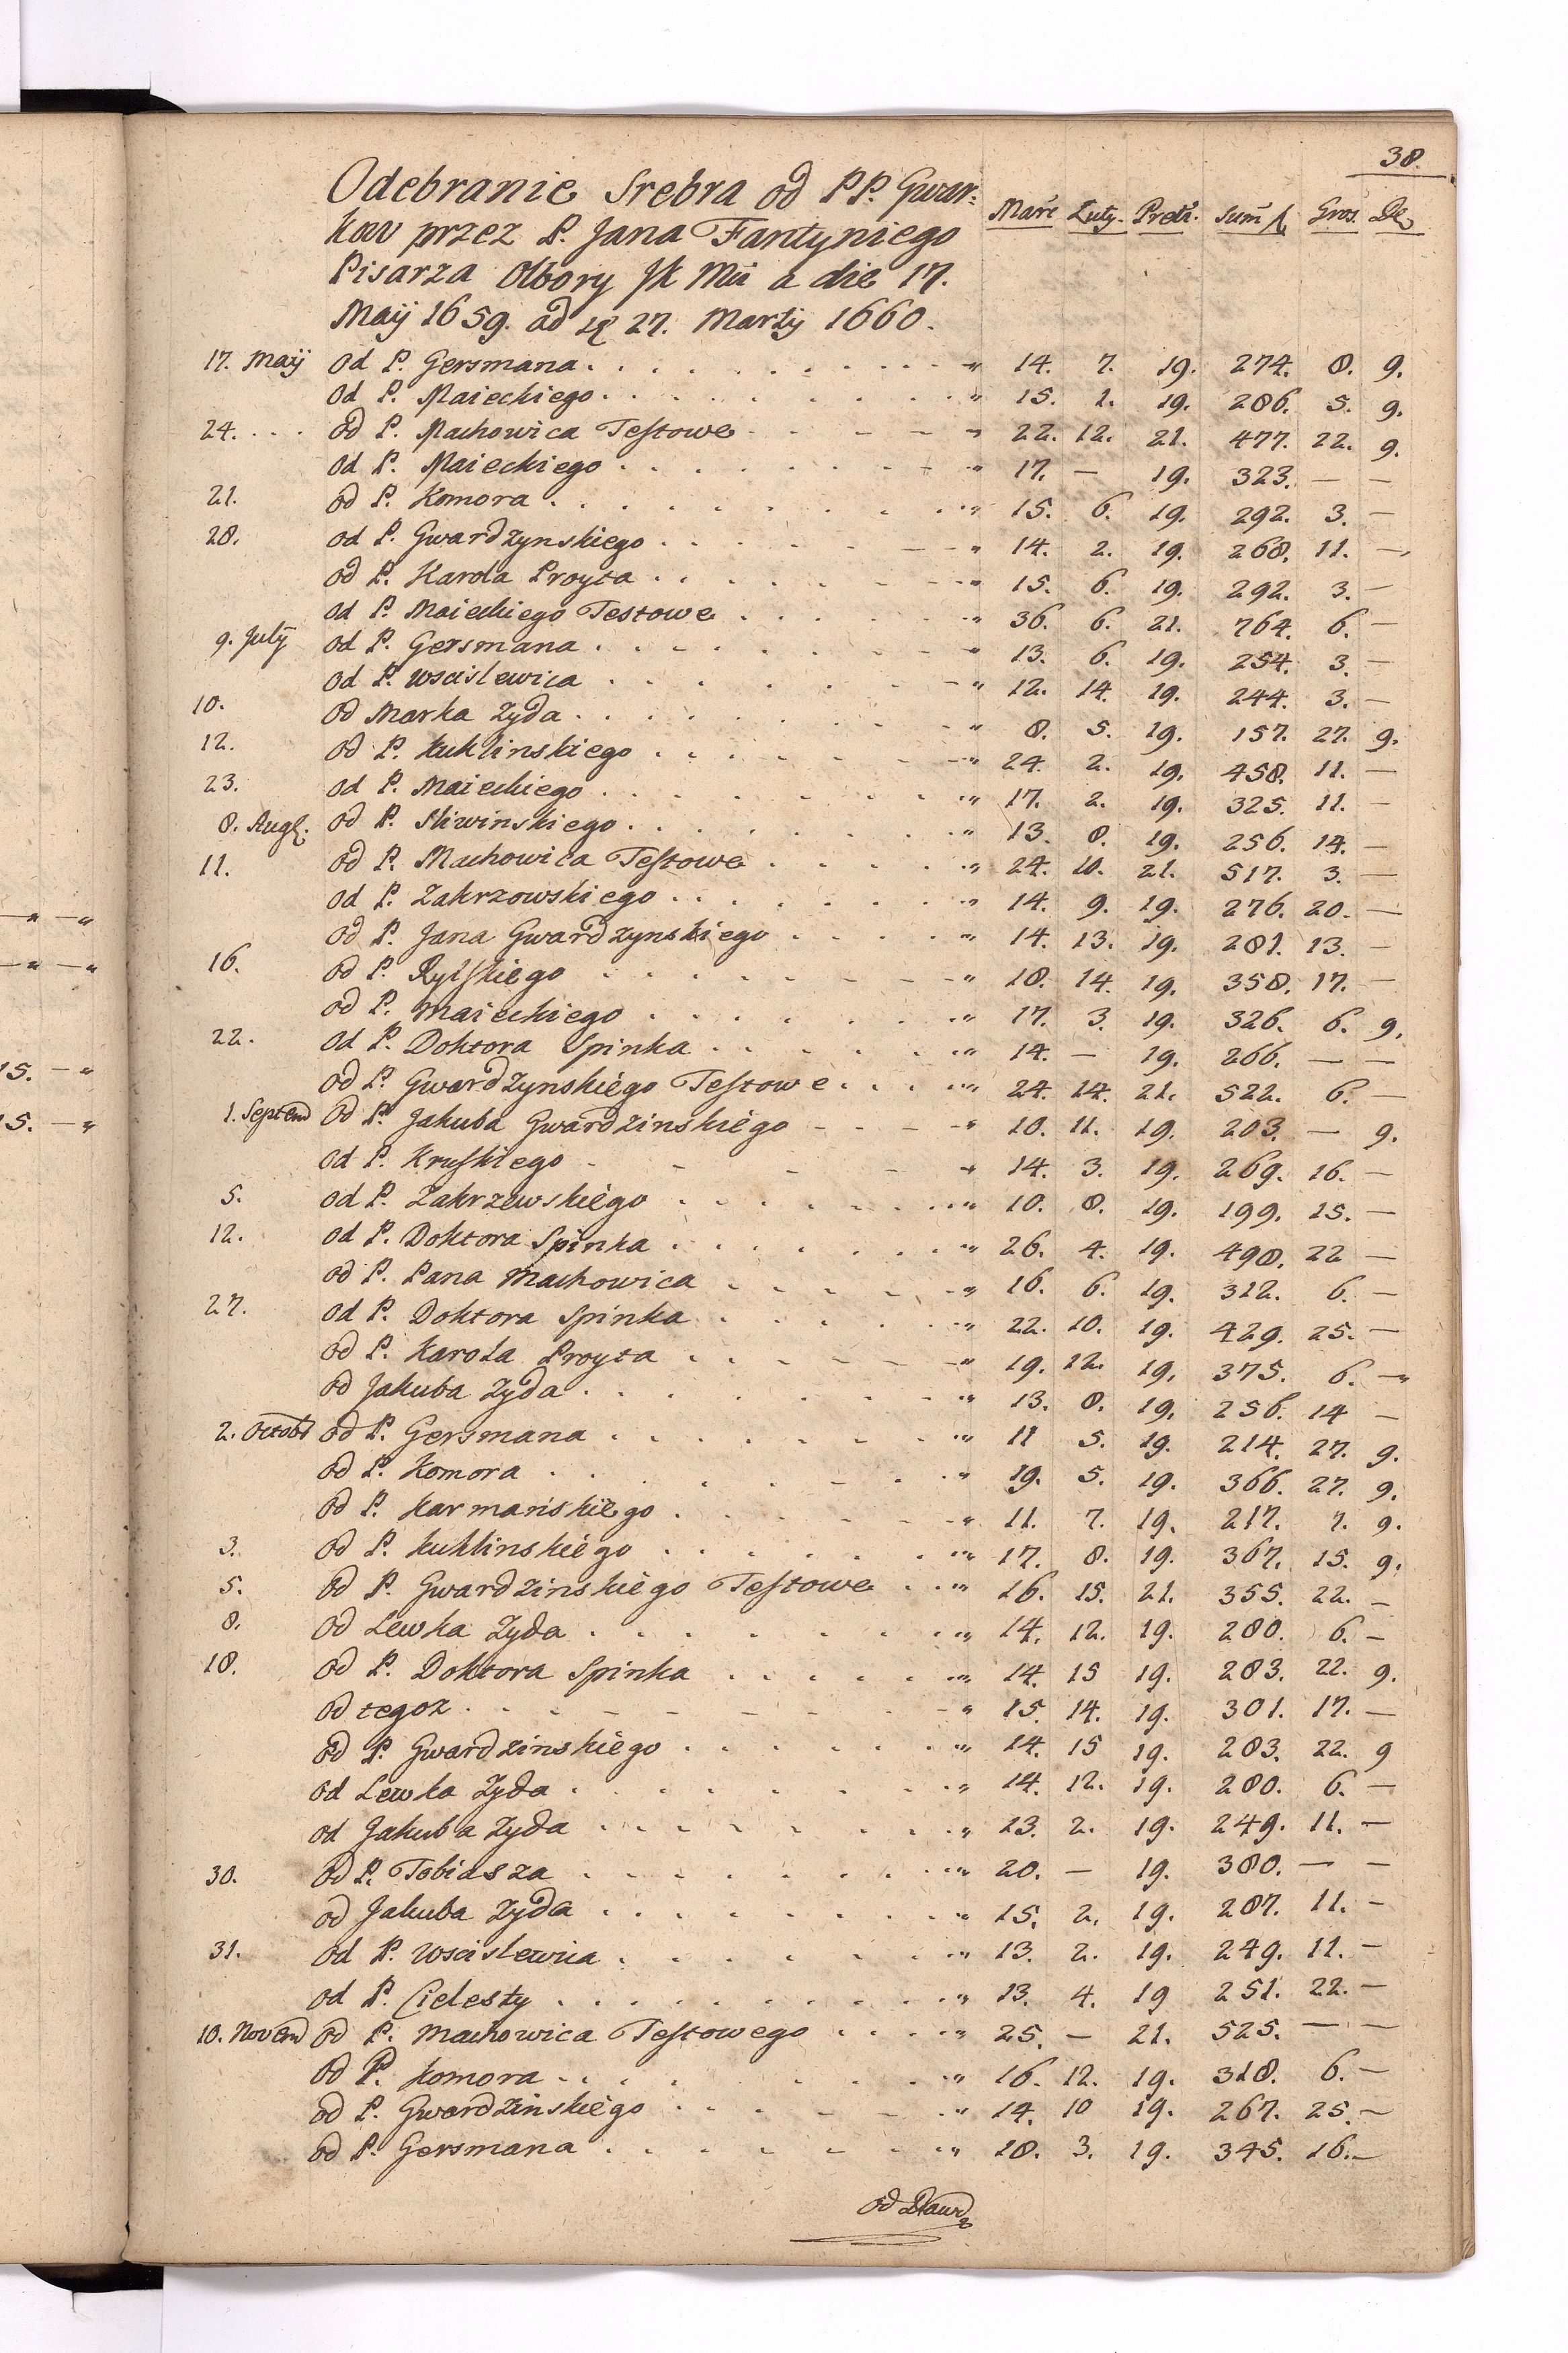 38.
Odebranie Srebra od PP. Gwar:
Kow przez P. Jana Fantyniego
Pisarza Olbory JK Mci a die 17.
Maij 1659. ad 27. Martij 1660.
Marc Luty. Preti. Sum fl Gros. De
17. Maij od P. Gersmana " 14. 7. 19. 274. 8. 9.
od P. Maieckiego " 15. 1. 19. 286. 5. 9.
24. od P. Machowica Testowe " 22. 12. 21. 477. 22. 9.
od P. Maieckiego " 17. — 19. 323. — —
21. od P. Komora " 15. 6. 19. 292. 3. —
28. od P. Gwardzynskiego " 14. 2. 19. 268. 11. —
od P. Karola Proyta " 15. 6. 19. 292. 3. —
od P. Maieckiego Testowe " 36. 6. 21. 764. 6. —
9. July od P. Gersmana " 13. 6. 19. 254. 3. —
od P. Wscislewica " 12. 14. 19. 244. 3. —
10. od Marka Zyda " 8. 5. 19. 157. 27. 9.
12. od P. Kuklinskiego " 24. 2. 19. 458. 11. —
23. od P. Maieckiego " 17. 2. 19. 325. 11. —
8. Aug. od P. Sliwinskiego " 13. 8. 19. 256. 14. —
11. od P. Machowica Testowe " 24. 10. 21. 517. 3. —
od P. Zakrzowskiego " 14. 9. 19. 276. 20. —
od P. Jana Gwardzynskiego " 14. 13. 19. 281. 13. —
16. od P. Rylskiego " 18. 14. 19. 358. 17. —
od P. Maieckiego " 17. 3. 19. 326. 6. 9.
22. od P. Doktora Spinka " 14. — 19. 266. — —
od P. Gwardzynskiego Testowe " 24. 14. 21. 522. 6. —
1. Septemb od P. Jakuba Gwardzinskiego " 10. 11. 19. 203. — 9.
od P. Kruskiego " 14. 3. 19. 269. 16. —
5. od P. Zakrzewskiego " 10. 8. 19. 199. 15. —
12. od P. Doktora Spinka " 26. 4. 19. 498. 22 —
od P. Pana Machowica " 16. 6. 19. 312. 6. —
27. od P. Doktora Spinka " 22. 10. 19. 429. 25. —
od P. Karola Proyta " 19. 12. 19. 375. 6. —
od Jakuba Zyda " 13. 8. 19. 256. 14 —
2. Octobr od P. Gersmana " 11 5. 19. 214. 27. 9.
od P. Komora " 19. 5. 19. 366. 27. 9.
od P. Karmanskiego " 11. 7. 19. 217. 7. 9.
3. od P. Kuklinskiego " 17. 8. 19. 367. 15. 9.
5. od P. Gwardzinskiego Testowe " 16. 15. 21. 355. 22. —
8. od Lewka Zyda " 14. 12. 19. 280. 6. —
18. od P. Doktora Spinka " 14. 15 19. 283. 22. 9.
od tegoz " 15. 14. 19. 301. 17. —
od P. Gwardzinskiego " 14. 15 19. 283. 22. 9
od Lewka Zyda " 14. 12. 19. 280. 6. —
od Jakuba Zyda " 13. 2. 19. 249. 11. —
30. od P. Tobiasza " 20. — 19. 380. — —
od Jakuba Zyda " 15. 2. 19. 287. 11. —
31. od P. Wscislewica " 13. 2. 19. 249. 11. —
od P. Cielesty " 13. 4. 19 251. 22. —
10. Novemb od P. Machowica Testowego " 25. — 21. 525. — —
od P. Komora " 16. 12. 19. 318. 6. —
od P. Gwardzinskiego " 14. 10 19. 267. 25. —
od P. Gersmana " 18. 3. 19. 345. 16. —
od
— " — "
— " — "
15. — "
15. — "